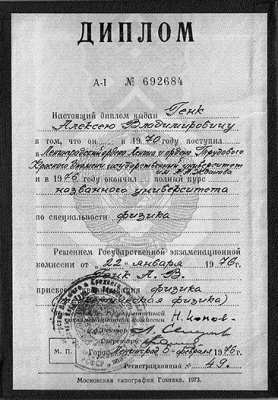 ДИПЛОМ
А-I № 692684
Настоящий диплом выдан Генк
Алексею Владимировичу
в том, что он в 1970 поступил в
Ленинградский ордена Ленина и ордена Трудового
Красного Знамени государственный университет
им. А.А. Жданова
и в 1976 окончил полный курс
названного университета
по специальности физика
Решением Государственной экзаменационной
комиссии от 22 января 1976 г.
Генк А. В.
физика
физика)
Государственной
экзаменационной комиссии
Секретарь
М. П. Город Ленинград 6 февраля 1976 г.
Регистрационный № 49.
Московская типография Гознака. 1973.